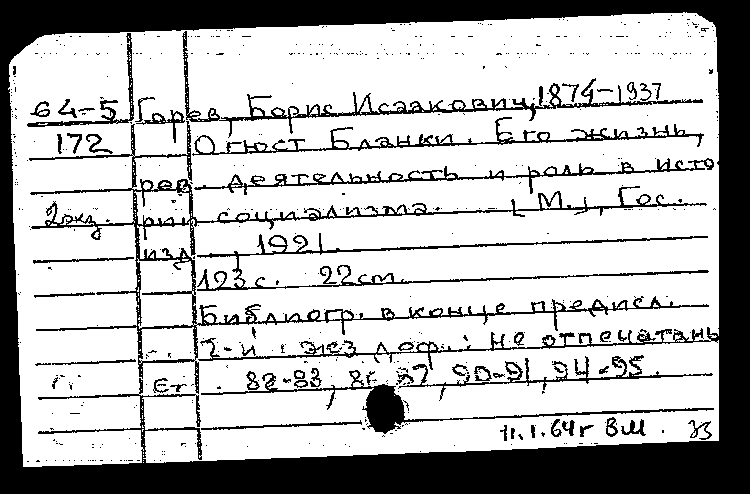 64-5 Горев, Борис Исаакович, 1874-1937
172 Огюст Бланки. Его жизнь,
рев. деятельность и роль в исто-
2 экз. рии социализма. - [М.], Гос.
изд., 1921.
123 с. 22 cm.
Библиогр. в конце предисл.
2-й экз. деф.: не отпечатаны
82-83, 86-87, 90-91, 94-95.
11.1.64 г ВМ.